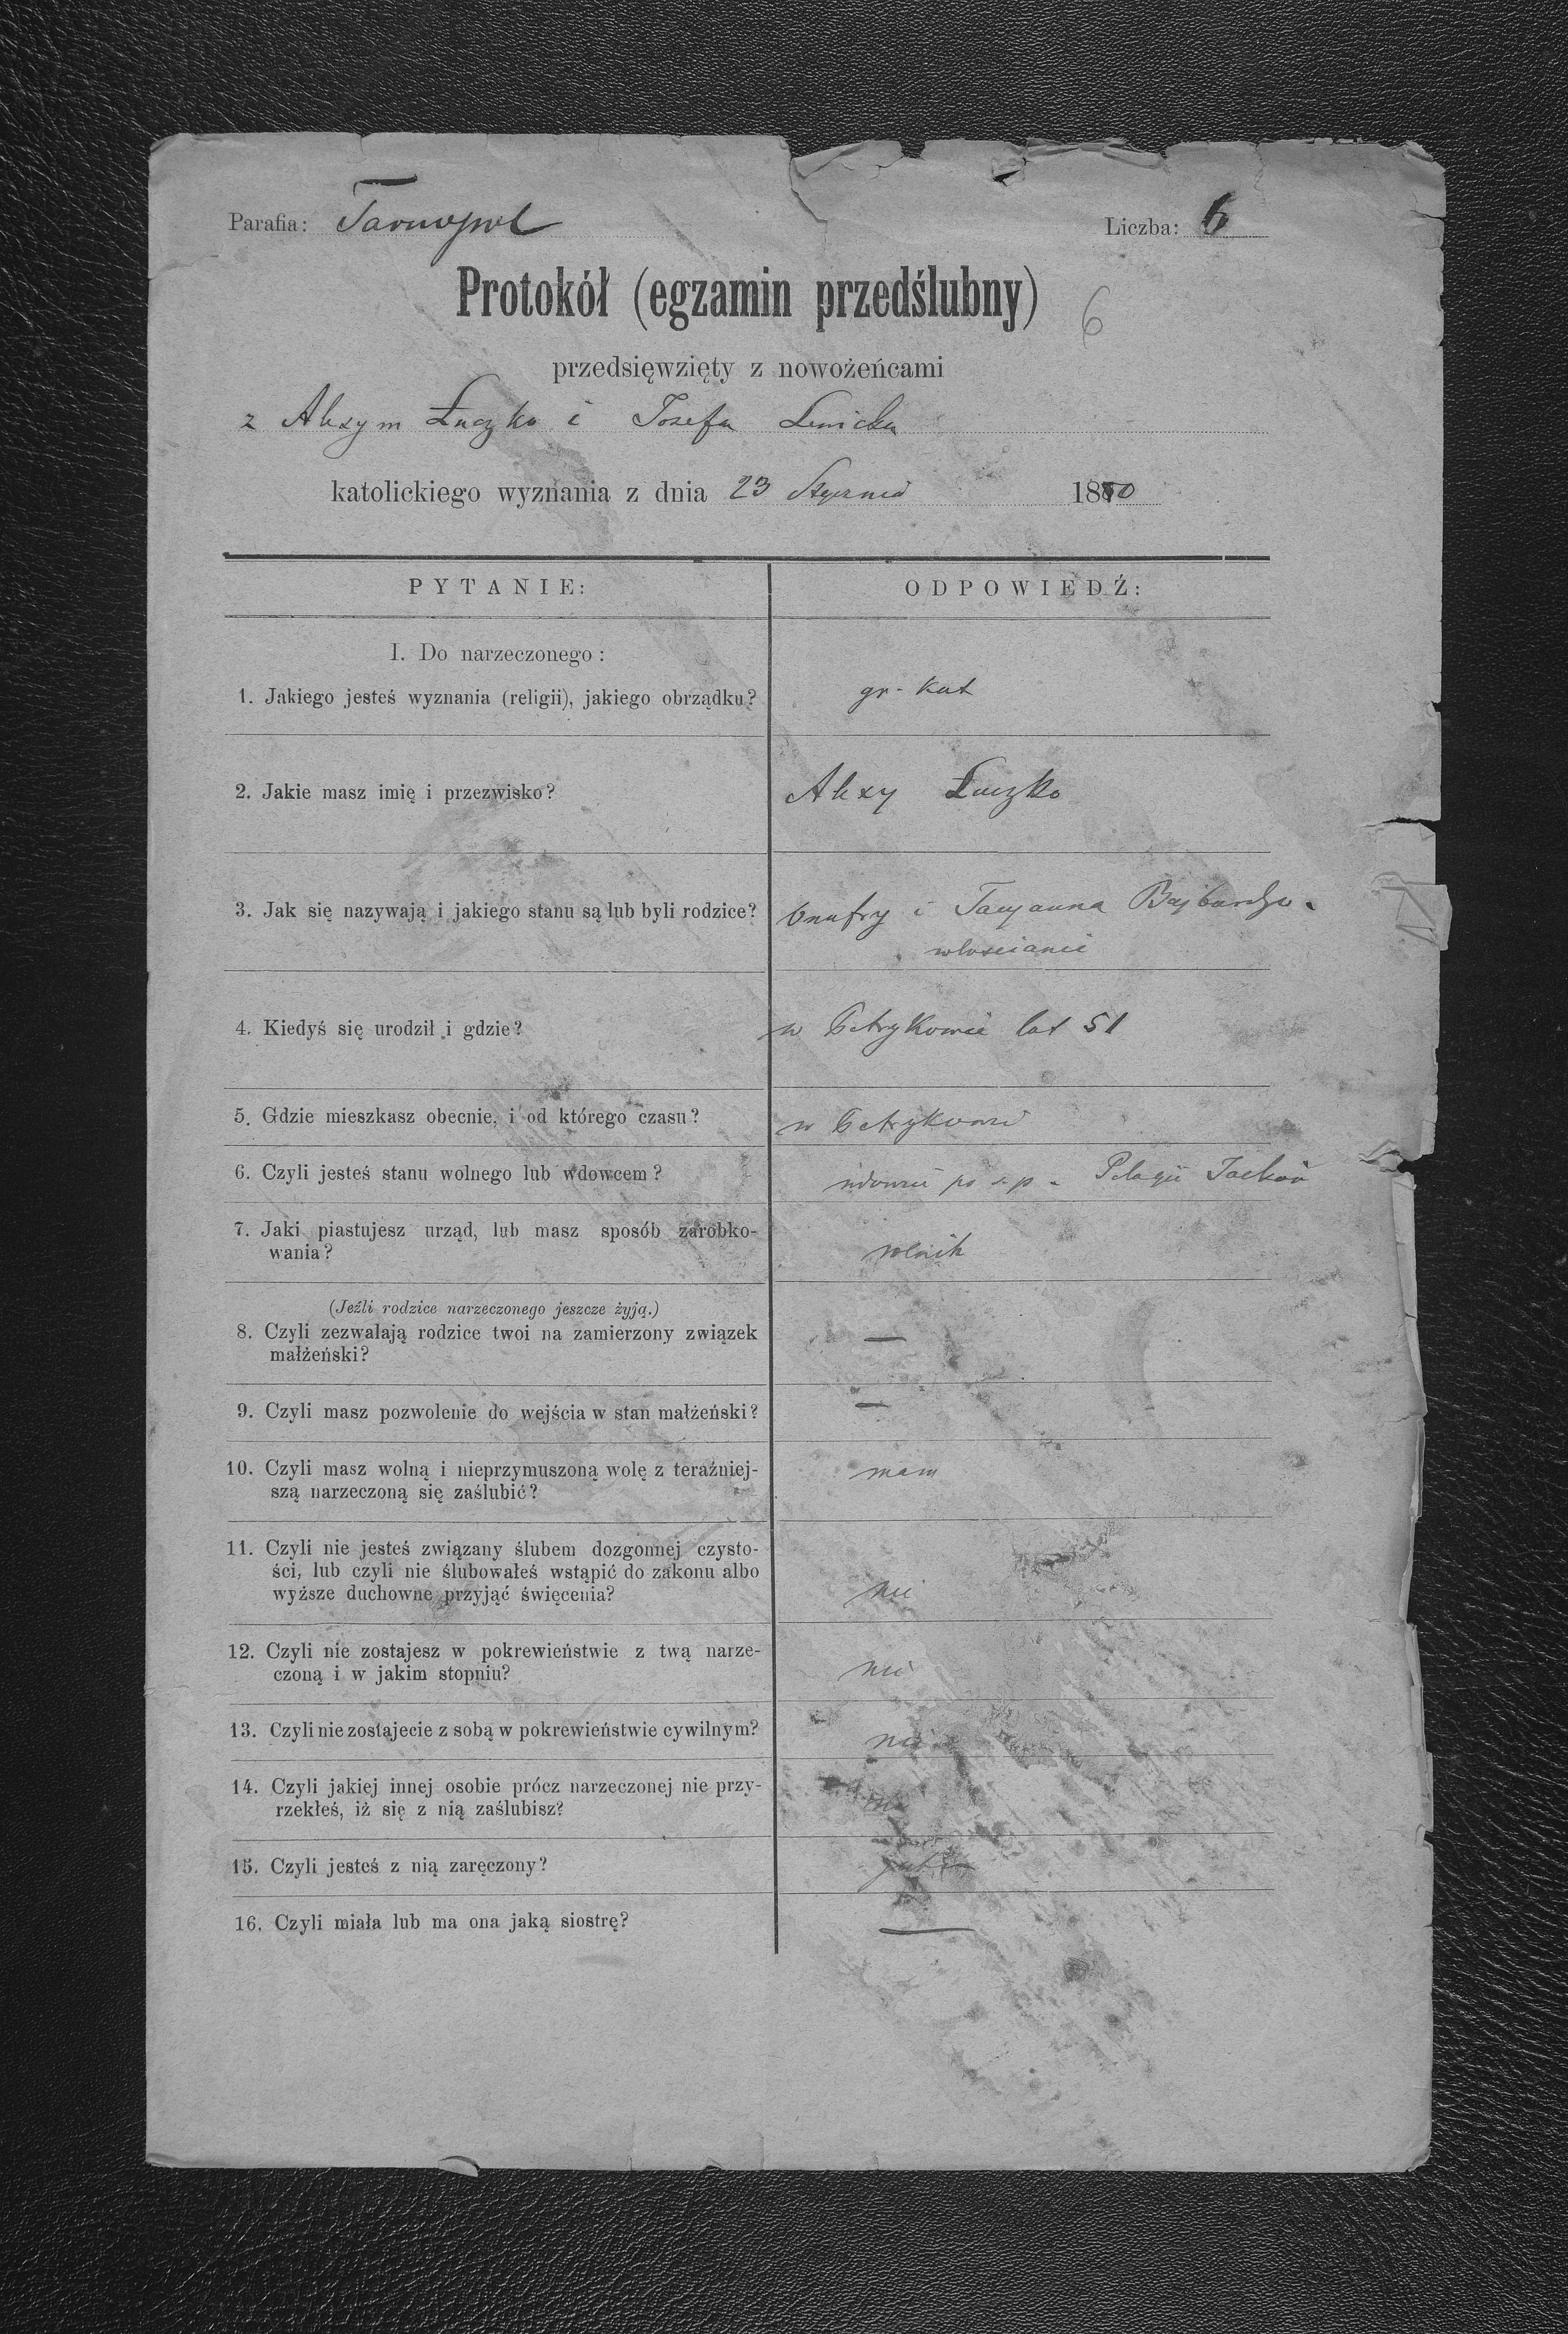 Parafia: Tarnopol Liczba: 6
Protokół (egzamin przedślubny)
6
przedsięwzięty z nowożeńcami
z Alexym Łuczko i Józefa
katolickiego wyznania z dnia 23 Stycznia 18
PYTANIE: ODPOWIEDŹ:
I. Do narzeczonego:
1. Jakiego jesteś wyznania (religii), jakiego obrządku? gr. kat
2. Jakie masz imię i przezwisko? Alexy Łuczko
3. Jak się nazywają i jakiego stanu są lub byli rodzice? Onufry i Tacyanna
włościanie
4. Kiedyś się urodził i gdzie? w Petrykowie lat 51
5. Gdzie mieszkasz obecnie, i od którego czasu? w Petrykowie
6. Czyli jesteś stanu wolnego lub wdowcem? wdowiec po ś.p. Pelagii
7. Jaki piastujesz urząd, lub masz sposób zarobko-
wania? rolnik
(Jeźli rodzice narzeczonego jeszcze żyją.)
8. Czyli zezwalają rodzice twoi na zamierzony związek
małżeński? —
9. Czyli masz pozwolenie do wejścia w stan małżeński? —
10. Czyli masz wolną i nieprzymuszoną wolę z teraźniej-
szą narzeczoną się zaślubić? mam
11. Czyli nie jesteś związany ślubem dozgonnej czysto-
ści, lub czyli nie ślubowałeś wstąpić do zakonu albo
wyższe duchowne przyjąć święcenia? nie
12. Czyli nie zostajesz w pokrewieństwie z twą narze-
czoną i w jakim stopniu? nie
13. Czyli nie zostajecie z sobą w pokrewieństwie cywilnym? nie
14. Czyli jakiej innej osobie prócz narzeczonej nie przy-
rzekłeś, iż się z nią zaślubisz? nie
15. Czyli jesteś z nią zaręczony?
16. Czyli miała lub ma ona jaką siostrę? —